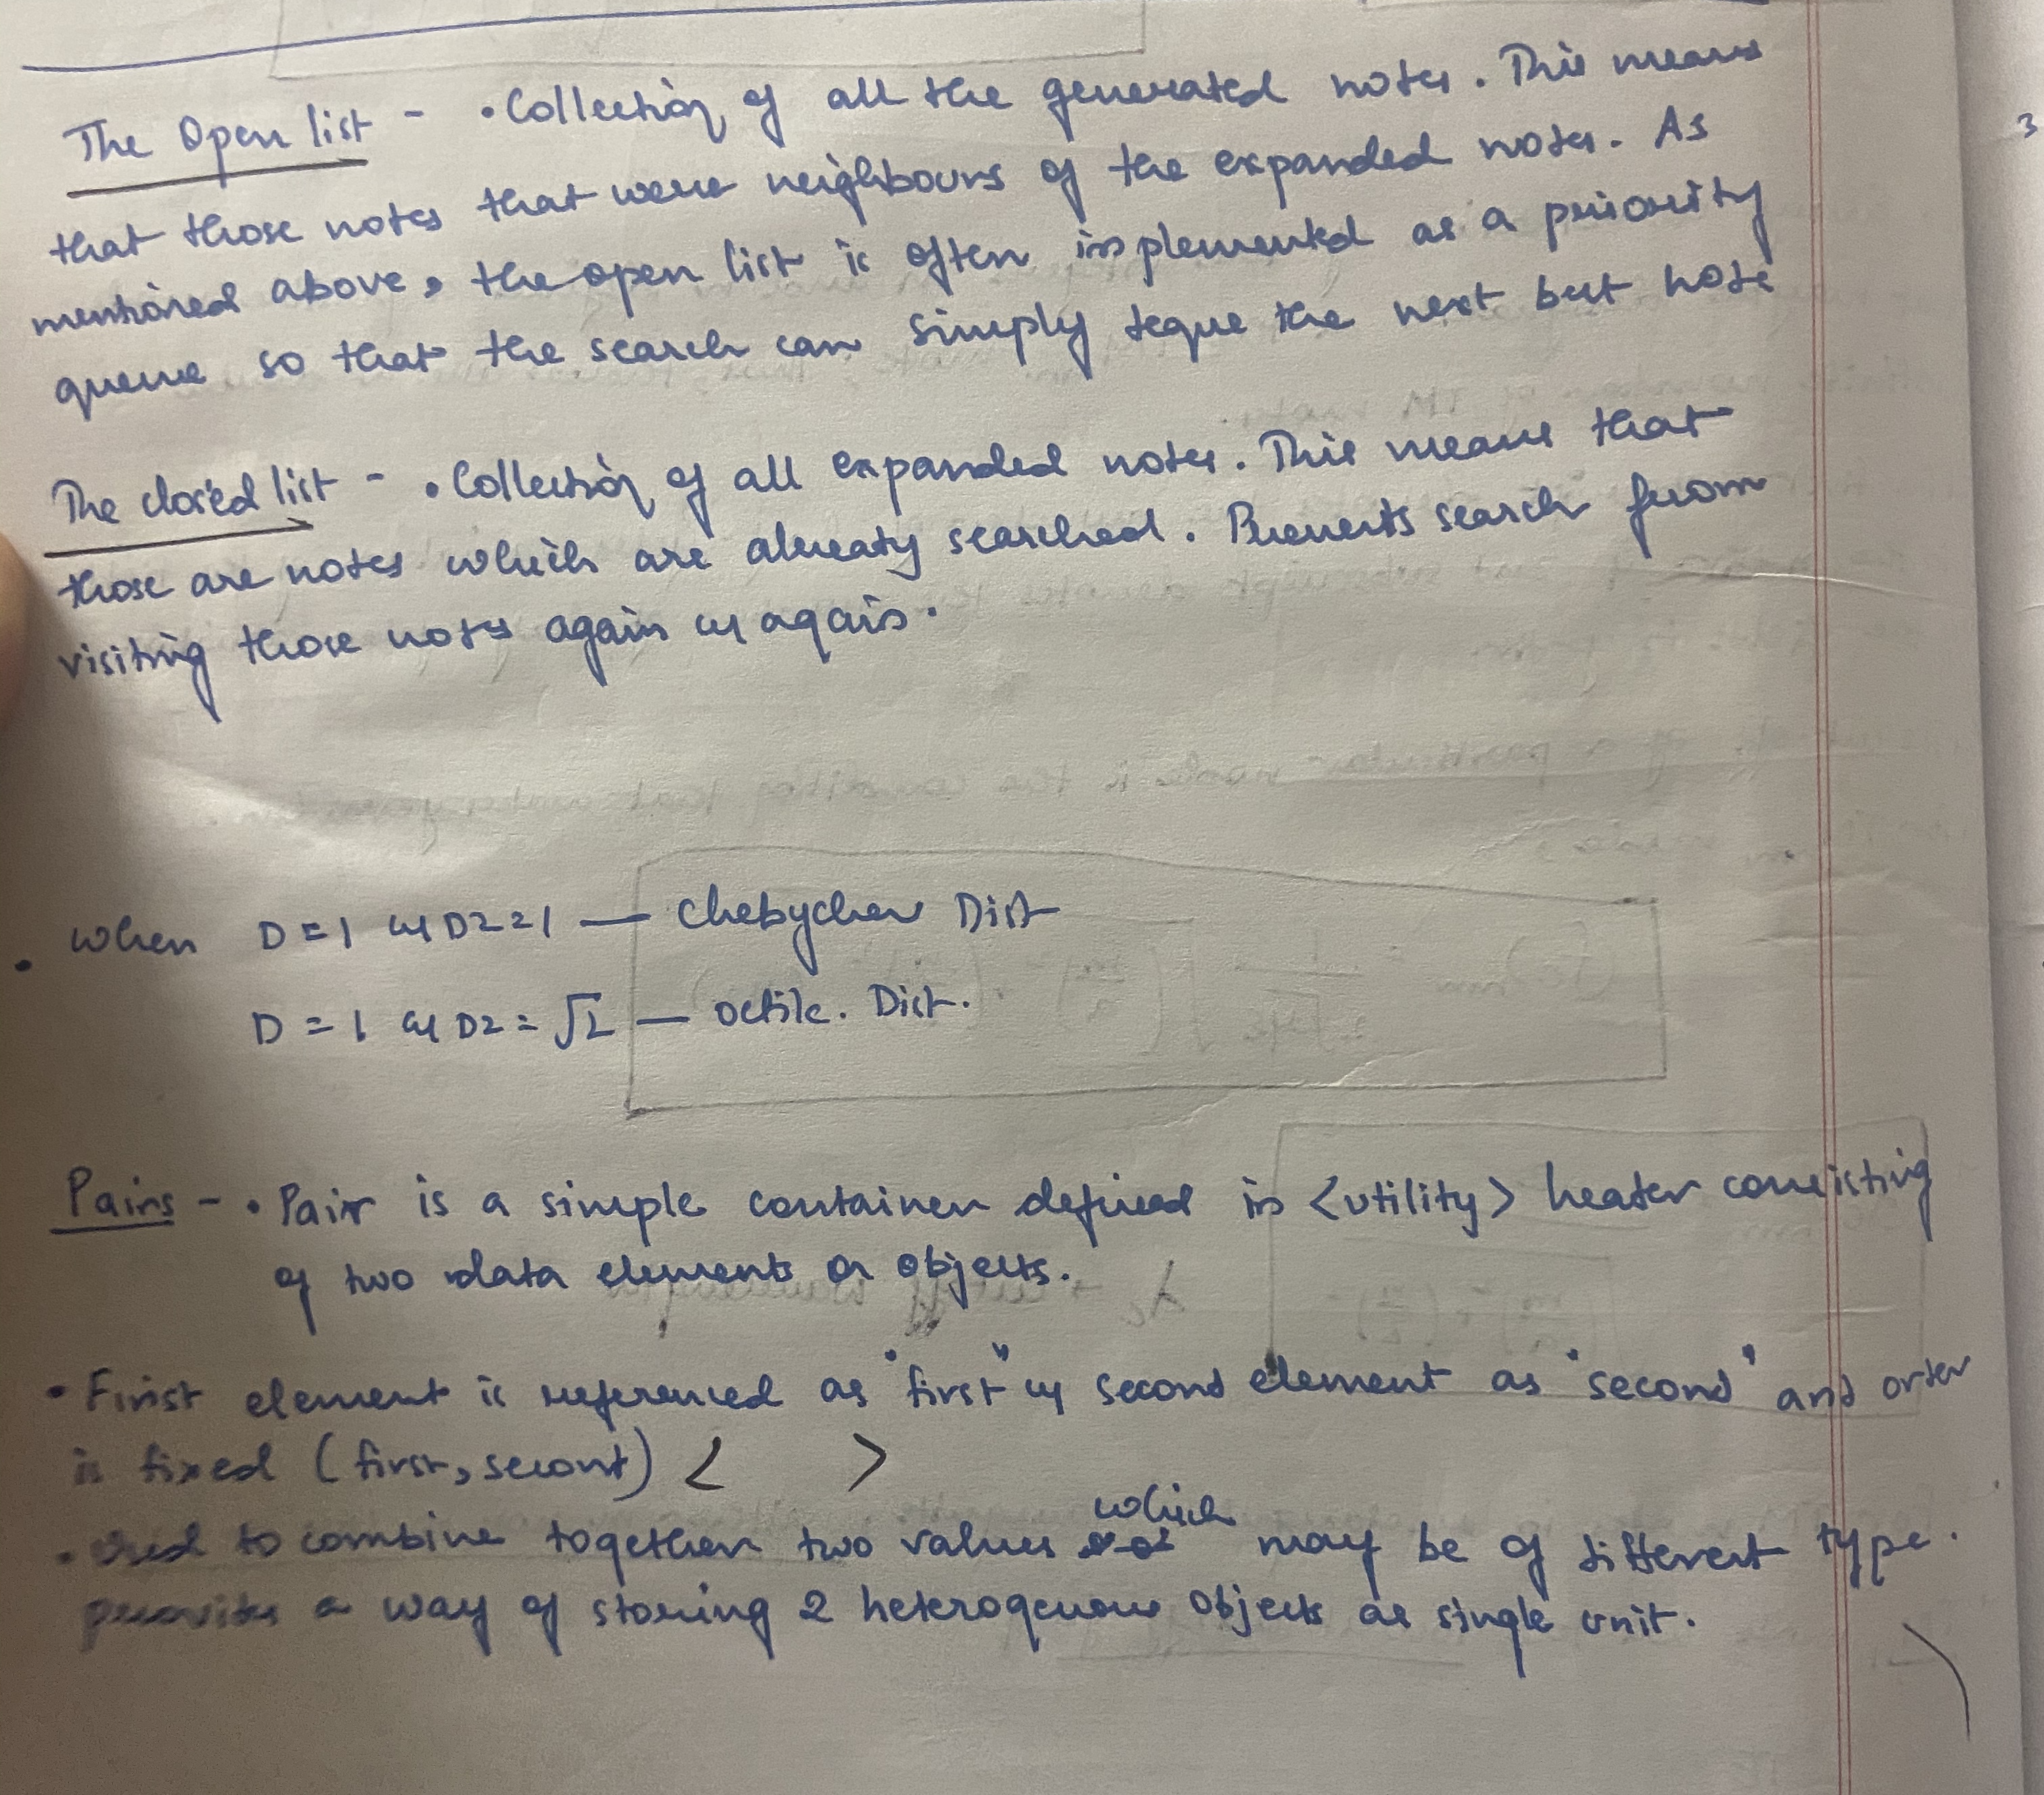 The Open list - • Collection of all the generated notes. This means
that those notes that were neighbours of the expanded notes. As
mentioned above, the open list is often implemented as a priority
queue so that the search can simply teque the next best note
The closed list - • Collection of all expanded notes. This means that
those are notes which are alreaty searched. Prevents search from
visiting those notes again & again.
• When D = 1 & D2 = 1 — Chebychev Dist
D = 1 & D2 = √2 — octile. Dist.
Pairs - • Pair is a simple container defined in <utility> heater consisting
of two data elements or objects.
• First element is referenced as "first" & second element as "second" and orter
is fixed (first, secont) < >
• Used to combine together two values which may be of tifferent type.
provites a way of storing 2 heterogenous objects as single unit.